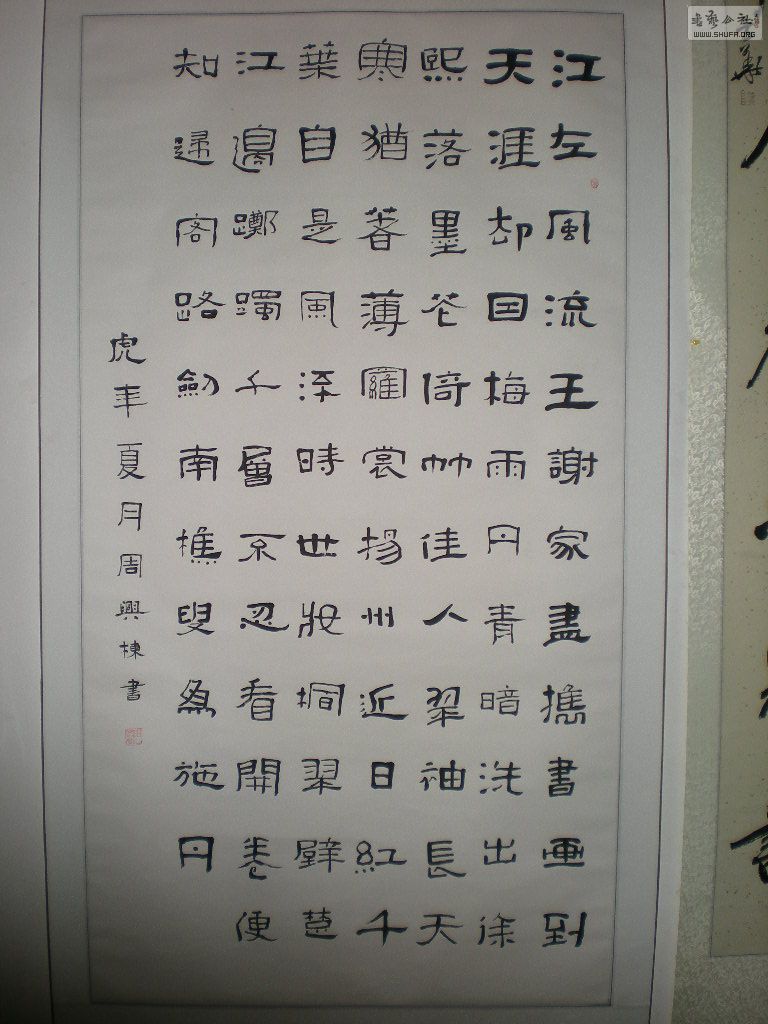 江左風流王謝家盡攜書画到
天涯却因梅雨丹青暗洗出徐
熙落墨花倚竹佳人翠袖長天
寒猶著薄羅裳揚州近日紅千
葉自是風流時世妝桐翠壁楚
江邊躑躅千層不忍看開卷便
知歸客路劍南樵叟為施丹
虎年夏月周興棟書
書藝公社
WWW.SHUFA.ORG